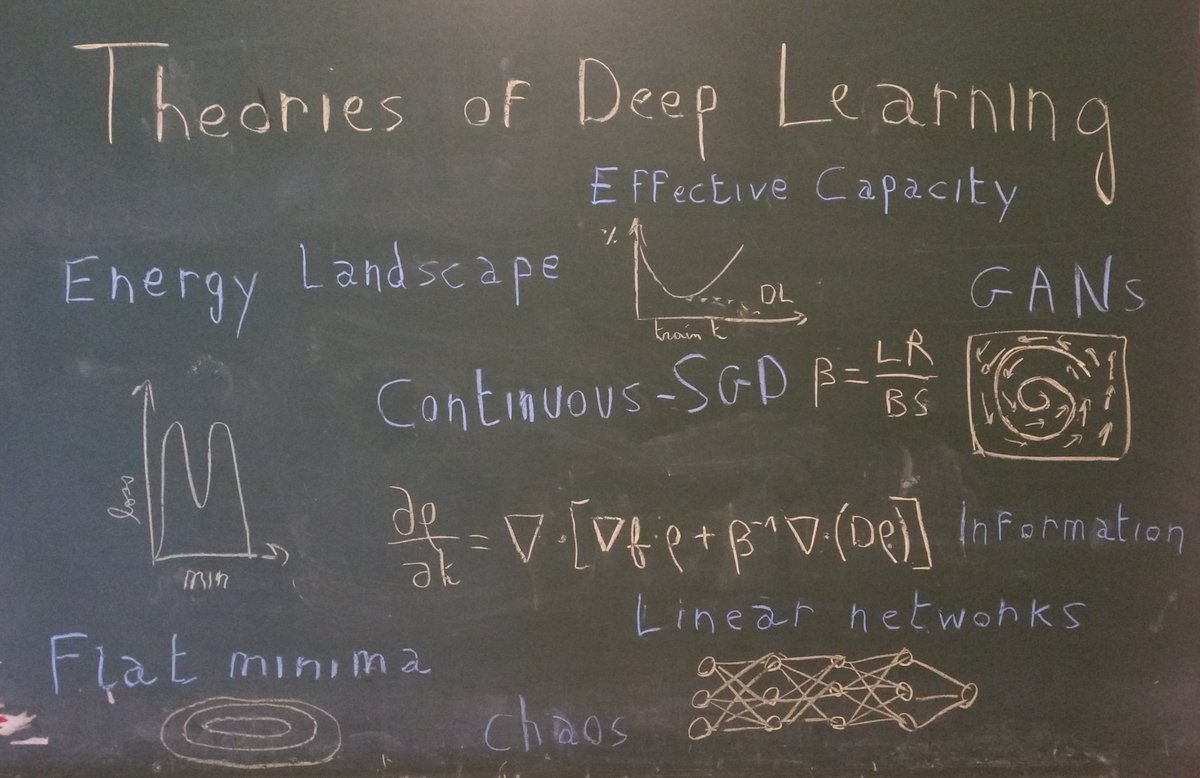 Theories of Deep Learning
Effective Capacity
Energy Landscape
%
DL
train t
GANs
Continuous-SGD
β = LR / BS
loss
min
∂ρ/∂t = ∇·[∇f·ρ + β⁻¹ ∇·(Dρ)]
Information
Linear networks
Flat minima
chaos